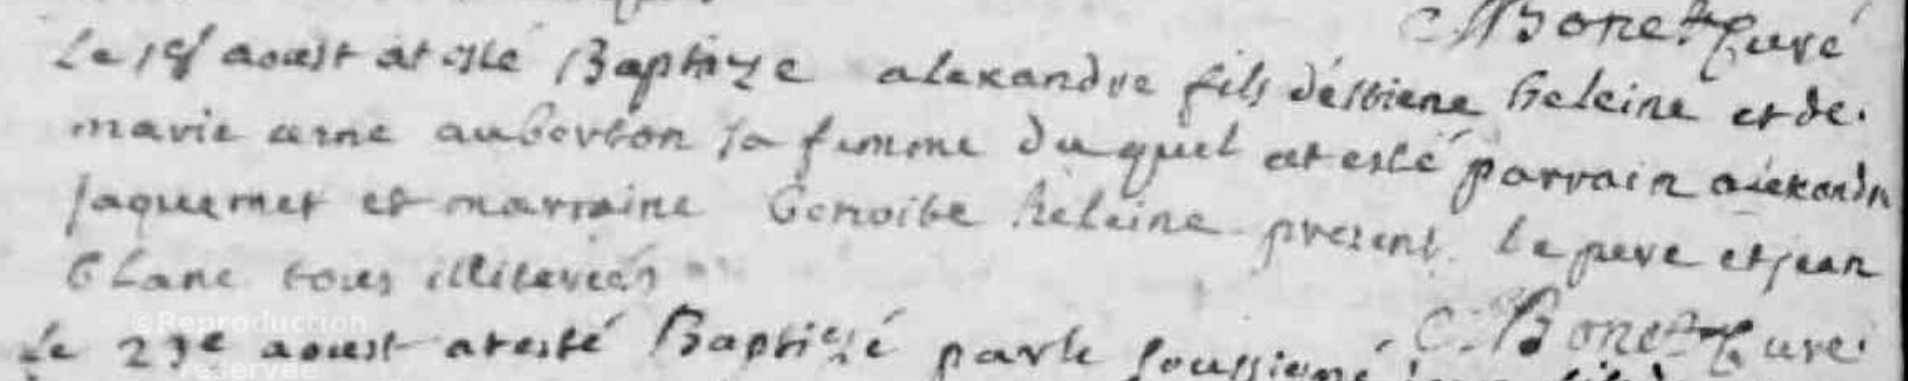 C Bonet Curé
Le 19 aoust at esté Baptize alexandre fils d'estiene heleine et de
marie anne auberton sa femme du quel at esté parrain alexandre
Jaquemet et marraine Genoive heleine present le pere et jean
blanc tous illiterées
C. Bonet Curé
Le 23e aoust at esté Baptizé par le soussigné
©Reproduction
réservée